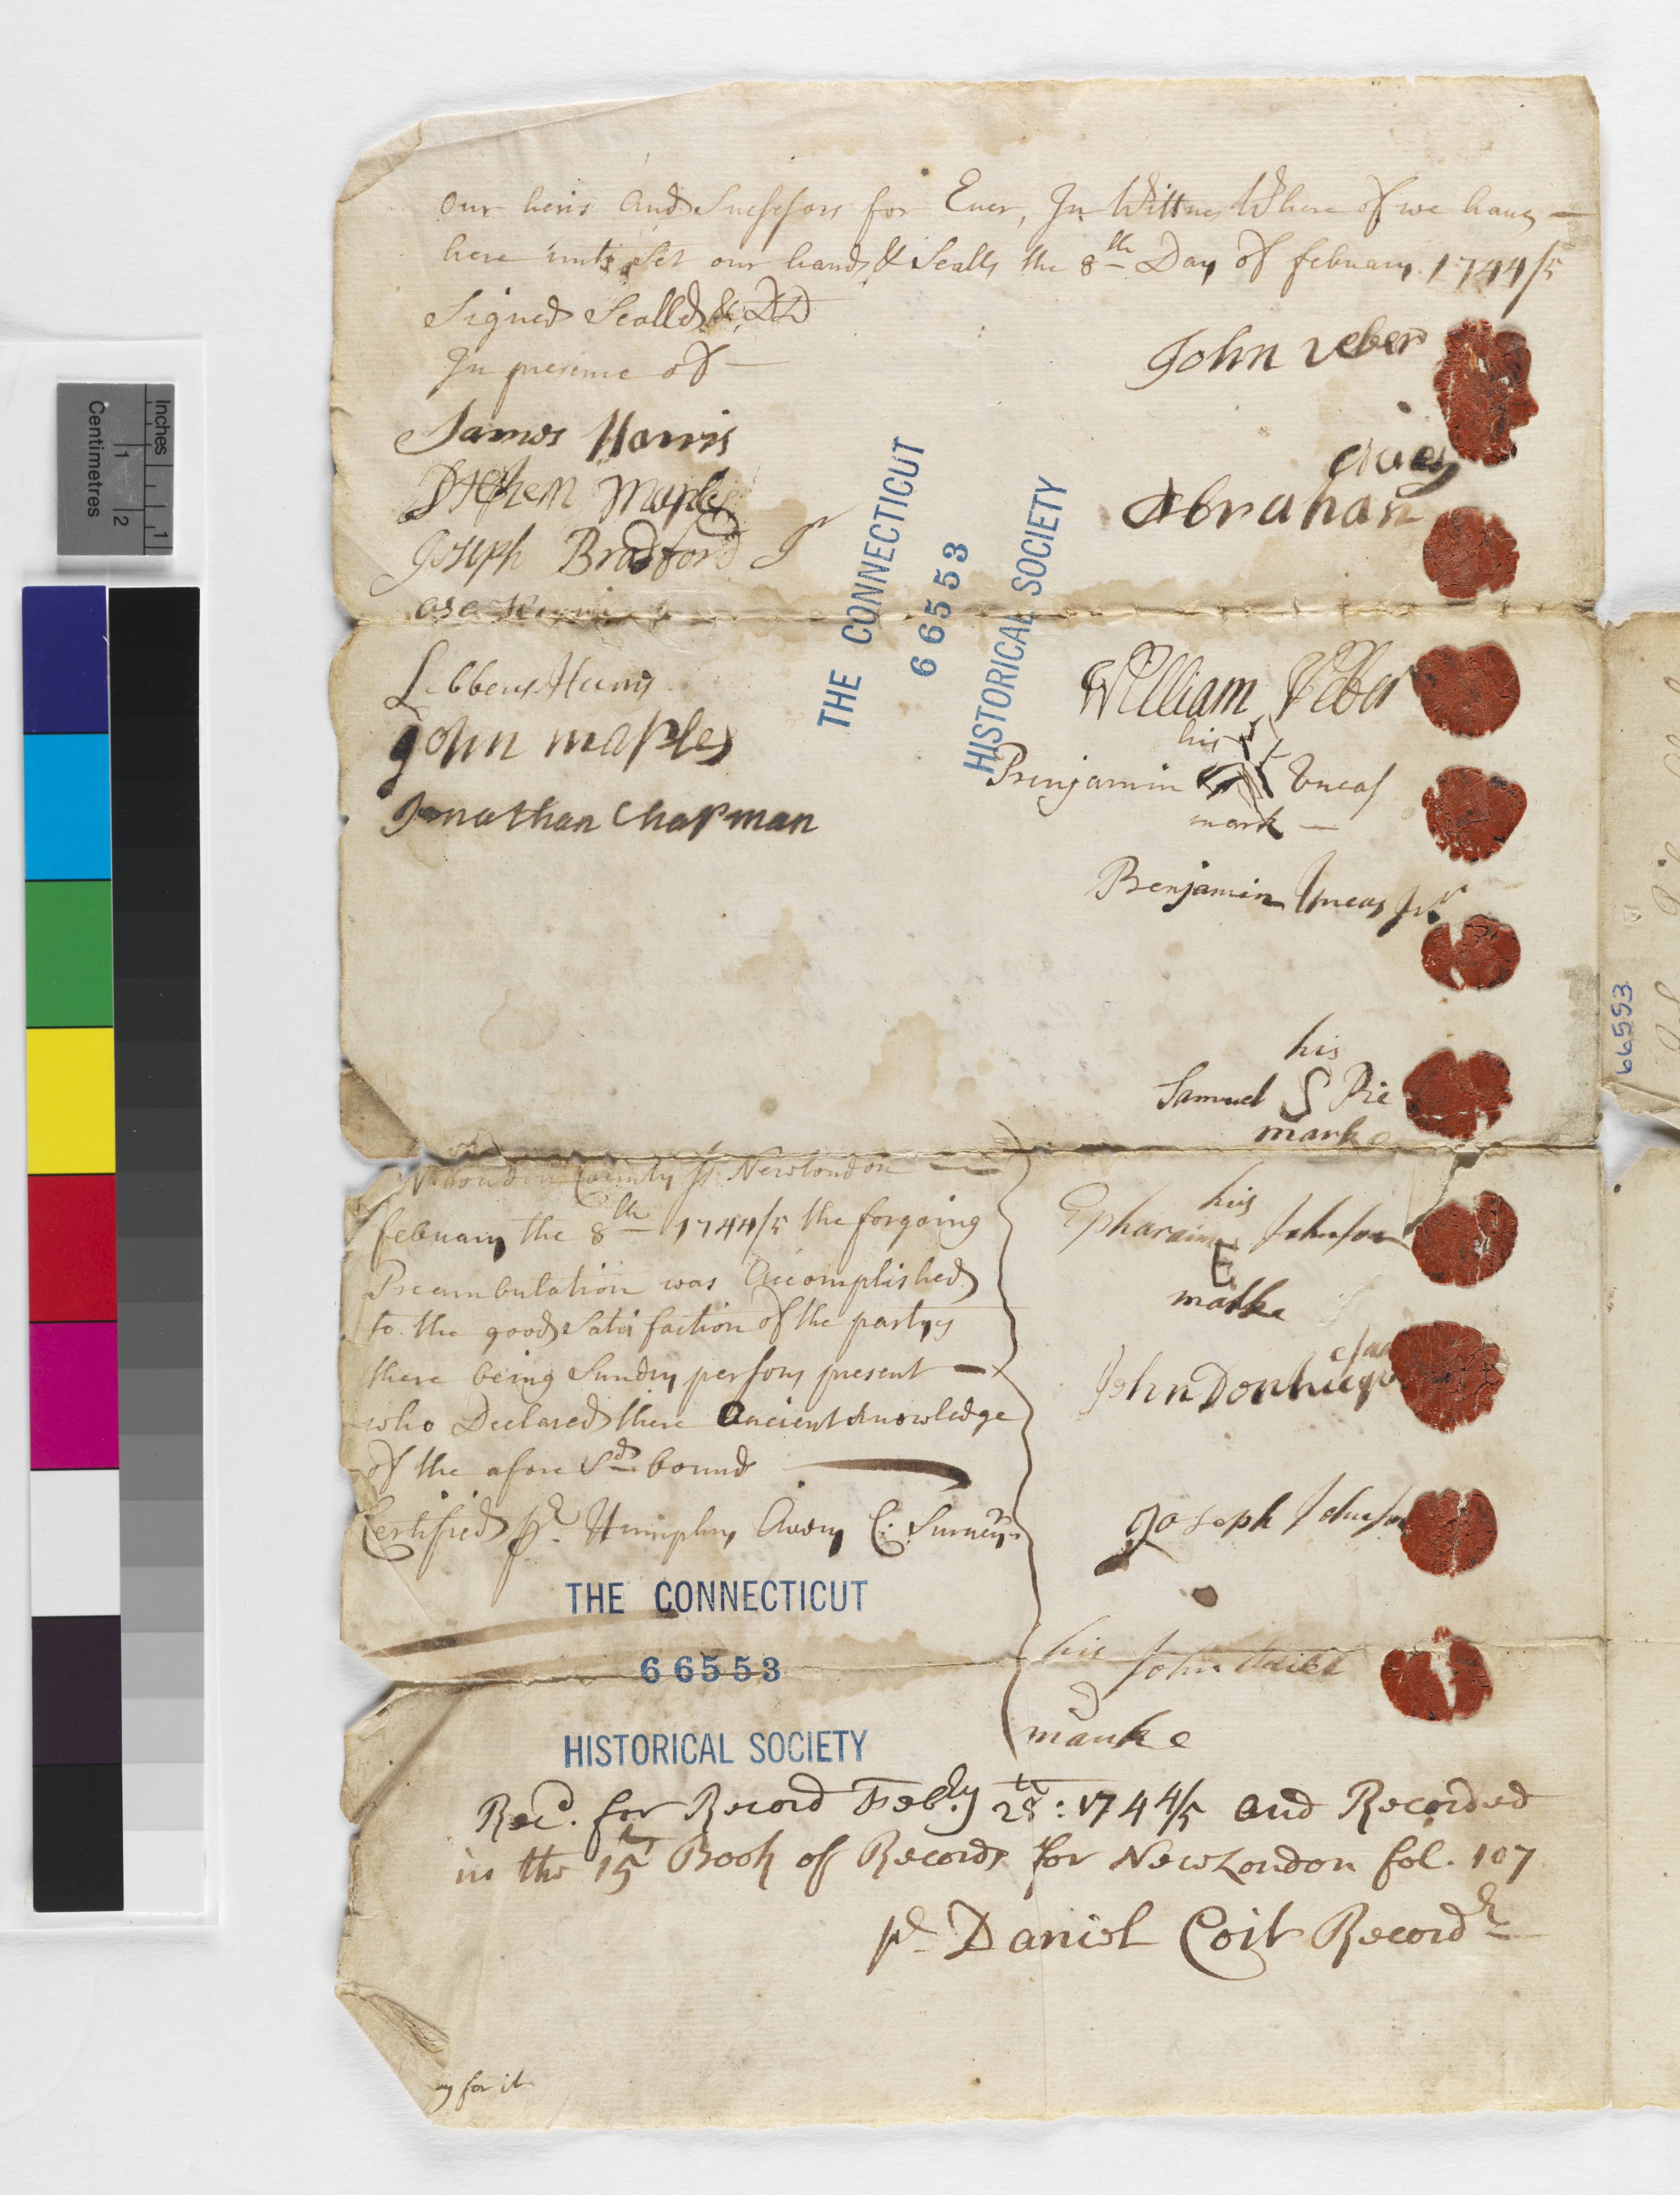 our heirs and Sucsessors for Ever, In Wittnes Where of we haue
here unto set our hands & Sealls the 8th Day of febuary 1744/5
Signed Sealld & DD
In presence of
James Harris
Stephen Maples
Joseph Bradford Jr
asa
Lebbeus Harris
John maples
Jonathan Chapman
John Veber
Abraham
William Veber
his
Benjamin Uncas
mark
Benjamin Uncas Jr
his
Samuel S Pie
marke
his
Epharaim E Johnson
marke
John
Joseph Johnson
his John
marke
N London County Ss Newlondon
febuary the 8th 1744/5 the forgoing
Preambulation was Accomplished
to the good Satisfaction of the partys
there being Sundry persons present
who Declared there Ancient knowledge
of the afore Sd bound
Certified pr Humphry Avery C: Surveyr
Recd. for Record Febry 28th: 1744/5 and Recorded
in the 15th Book of Records for New London fol. 107
pr Daniel Coit Recordr
for it
THE CONNECTICUT
66553
HISTORICAL SOCIETY
THE CONNECTICUT
66553
HISTORICAL SOCIETY
66553
Inches
Centimetres
1
2
1